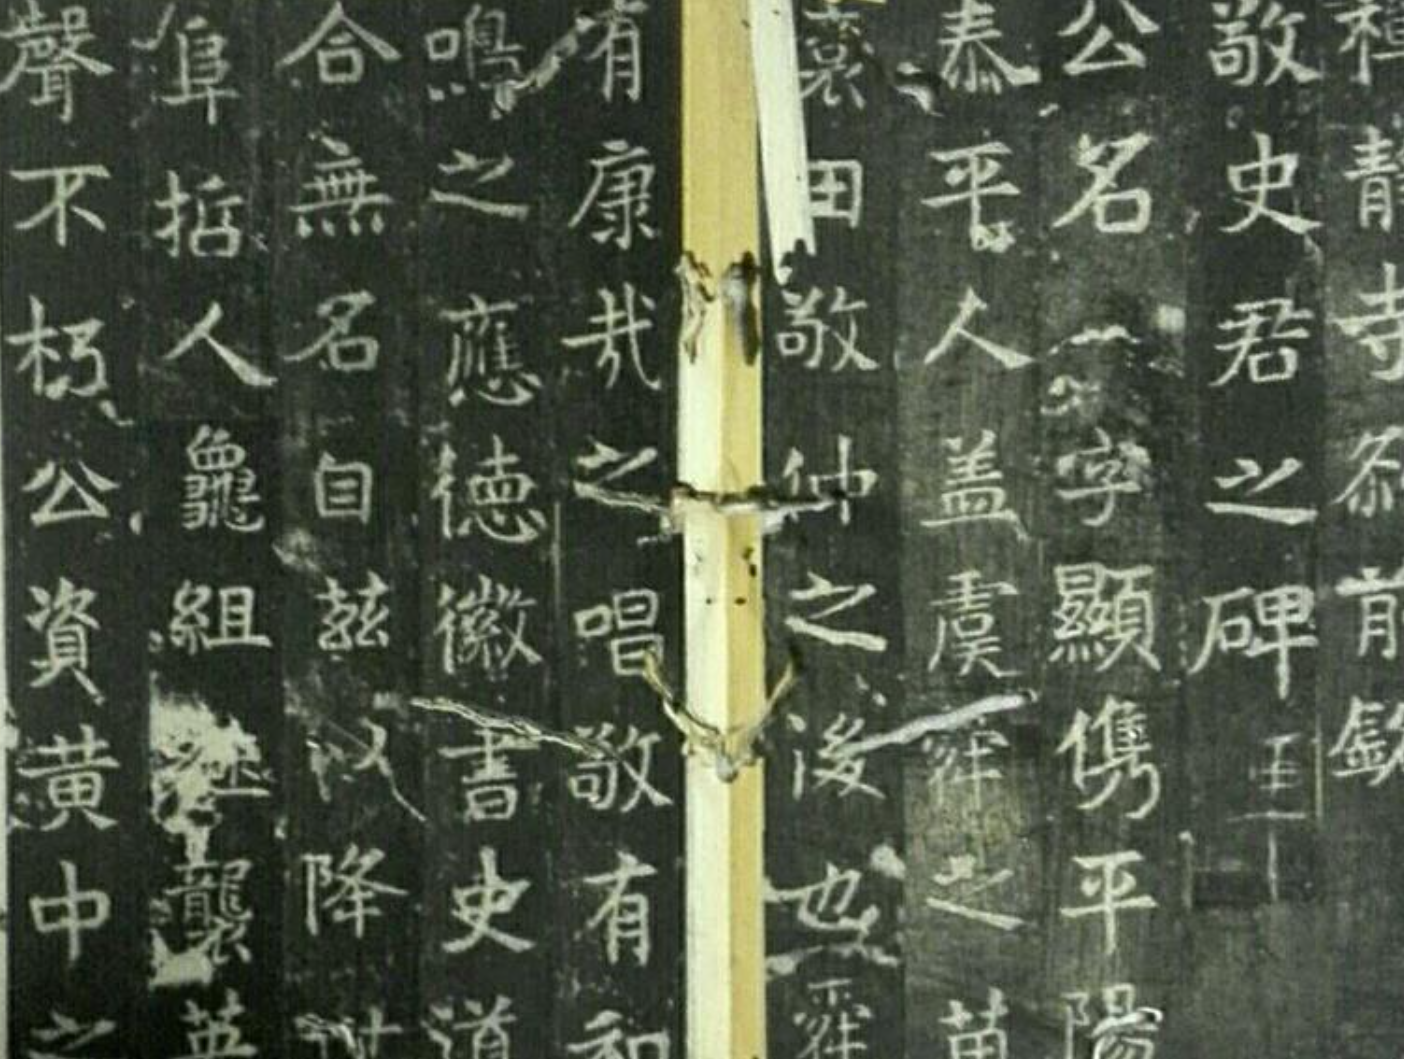 禪靜寺刹前銘
敬史君之碑
公名字顯儁平陽
泰平人盖虞舜之苗
裔田敬仲之後也舜
有康哉之唱敬有和
鳴之應德徽書史道
合無名自兹以降
阜哲人龜組襲英
聲不朽公資黄中之